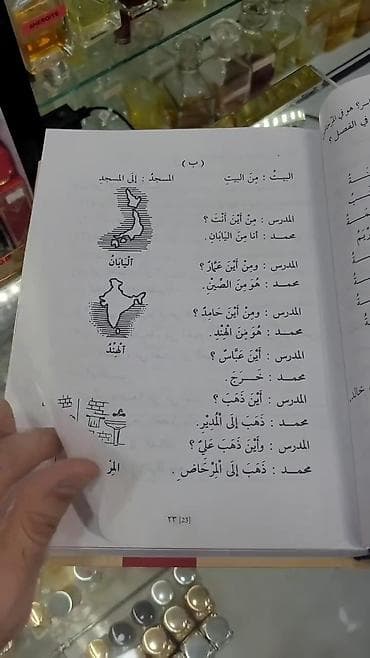 (ب)
البيتُ : مِنَ البيتِ المسجدُ : إلَى المسجدِ
المدرس : مِنْ أَيْنَ أَنْتَ ؟
محمد : أنا مِنَ اليَابَانِ.
اَلْيَابَانُ
المدرس : ومِنْ أَيْنَ عَمَّارٌ ؟
محمد : هُوَ مِنَ الصِّينِ.
المدرس : ومِنْ أَيْنَ حَامِدٌ ؟
محمد : هُوَ مِنَ الْهِنْدِ.
اَلْهِنْدُ
المدرس : أَيْنَ عَبَّاسٌ ؟
محمد : خَرَجَ.
المدرس : أَيْنَ ذَهَبَ ؟
محمد : ذَهَبَ إلَى الْمُدِيْرِ.
المدرس : وأَيْنَ ذَهَبَ عَلِيٌّ ؟
محمد : ذَهَبَ إلَى الْمِرْحَاضِ.
٢٣ [23]